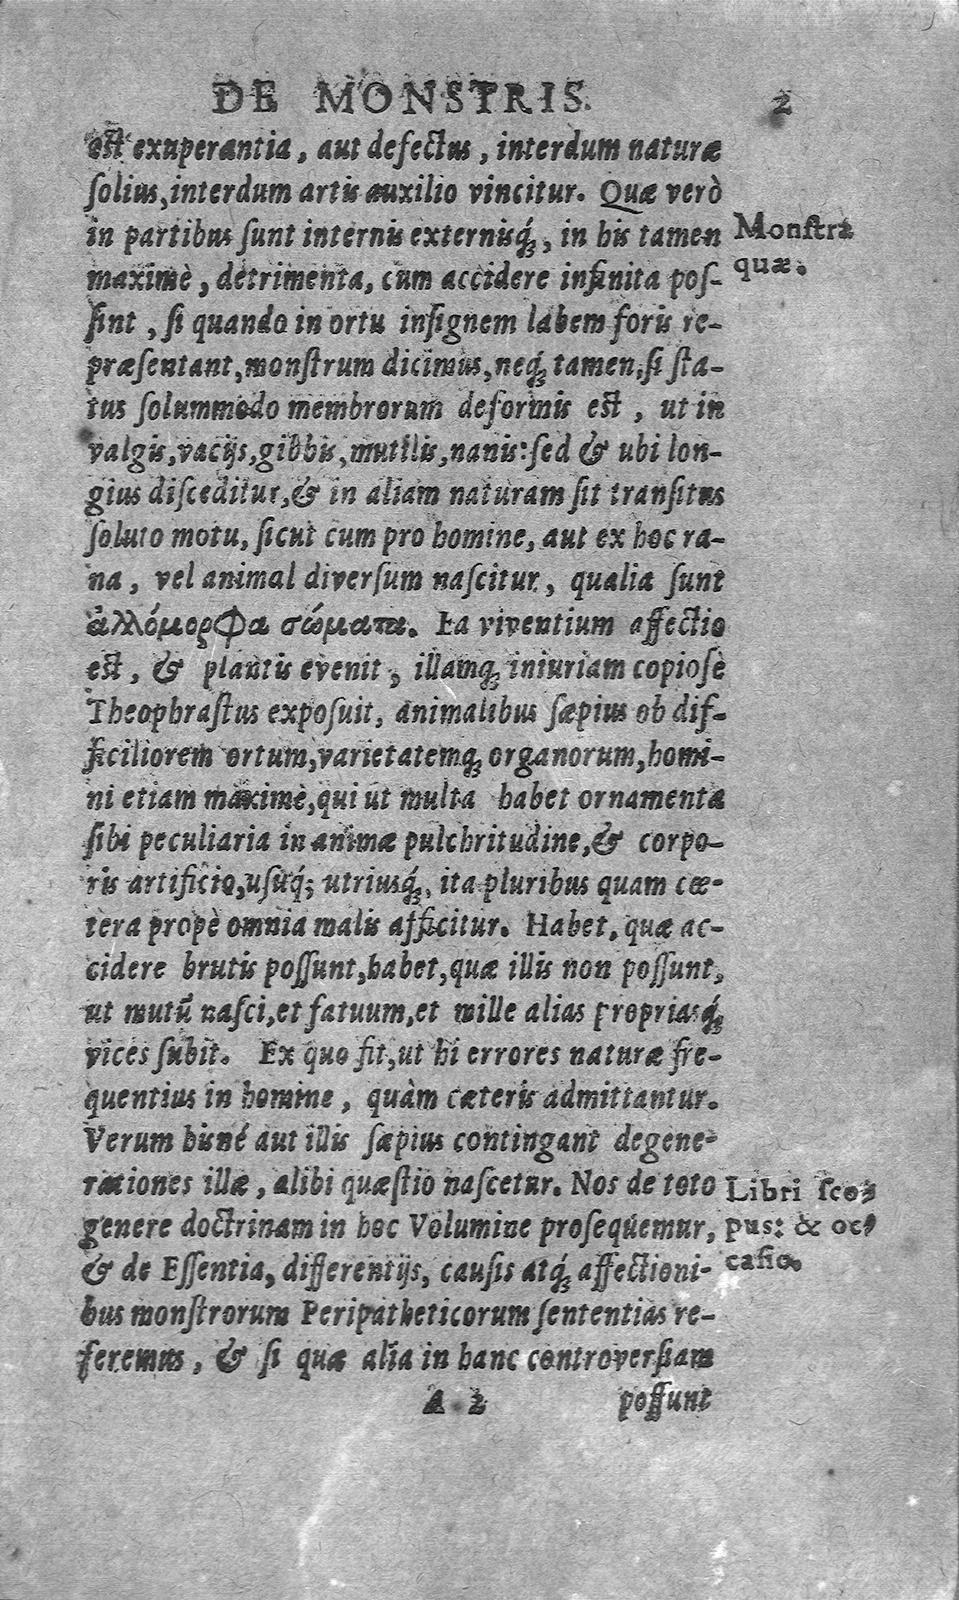 DE MONSTRIS. 2
est exuperantia, aut defectus, interdum naturæ
ſolius, interdum artis auxilio vincitur. Quæ verò
in partibus ſunt internis externisq́;, in his tamen
Monſtra
maximè, detrimenta, cum accidere infinita poſ-
quæ.
ſint, ſi quando in ortu inſignem labem foris re-
præſentant, monſtrum dicimus, neq́; tamen, ſi ſta-
tus ſolummodo membrorum deformis eſt, ut in
valgis, vacijs, gibbis, mutilis, nanis: ſed & ubi lon-
gius diſceditur, & in aliam naturam fit tranſitus
ſoluto motu, ſicut cum pro homine, aut ex hoc ra-
na, vel animal diverſum naſcitur, qualia ſunt
ἀλλόμορφα σώματα. Ea viventium affectio
eſt, & plantis evenit, illamq; iniuriam copioſè
Theophraſtus expoſuit, animalibus ſæpius ob dif-
ficiliorem ortum, varietatemq; organorum, homi-
ni etiam maximè, qui ut multa habet ornamenta
ſibi peculiaria in animæ pulchritudine, & corpo-
ris artificio, uſuq́; utriusq́;, ita pluribus quam cœ-
tera propè omnia malis afficitur. Habet, quæ ac-
cidere brutis poſſunt, habet, quæ illis non poſſunt,
ut mutũ naſci, et fatuum, et mille alias propriasq́;
vices ſubit. Ex quo fit, ut hi errores naturæ fre-
quentius in homine, quàm cæteris admittantur.
Verum hisné aut illis ſæpius contingant degene-
rationes illæ, alibi quæſtio naſcetur. Nos de toto
Libri ſco-
genere doctrinam in hoc Volumine proſequemur,
pus: & oc-
& de Eſſentia, differentijs, cauſis atq́; affectioni-
caſio.
bus monſtrorum Peripatheticorum ſententias re-
feremus, & ſi quæ alia in hanc controverſiam
A 2 poſſunt